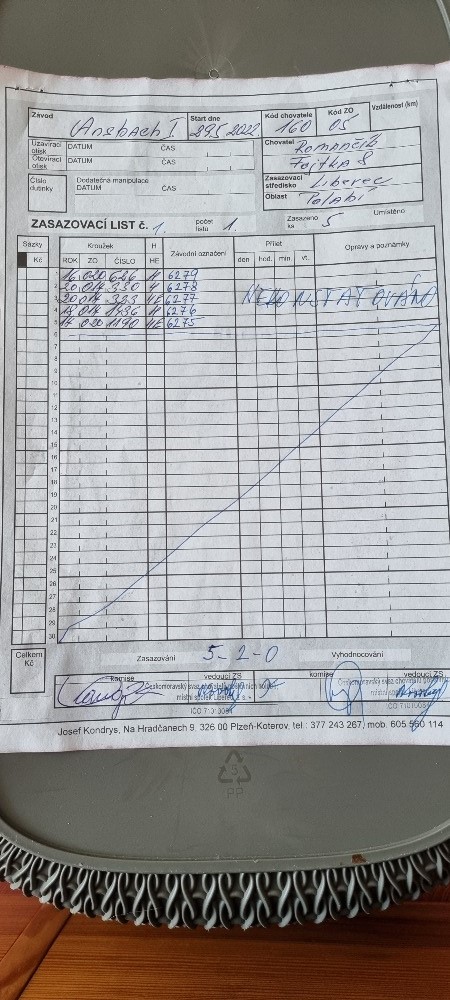 Závod Ansbach I Start dne 29.5 2022 Kód chovatele 160 Kód ZO 05 Vzdálenost (km)
Uzavírací otisk DATUM ČAS
Otevírací otisk DATUM ČAS
Chovatel
Fojtka 8
Číslo dutinky
Dodatečná manipulace
DATUM ČAS
Zasazovací středisko Liberec
Oblast Polabí
ZASAZOVACÍ LIST č. 1. počet listu 1. Zasazeno ks 5 Umístěno
Sázky Kroužek H Závodní označení Přílet Opravy a poznámky
Kč ROK ZO ČÍSLO HE den hod. min. vt.
16 020 626 H 6279
2 20 014 330 H 6278
3 20 014 323 HE 6277 NEKONSTATOVÁNO
4 18 014 1436 H 6276
5 14 020 1190 HE 6275
6
7
8
9
10
11
12
13
14
15
16
17
18
19
20
21
22
23
24
25
26
27
28
29
30
Celkem Kč
Zasazování 5-2-0 Vyhodnocování
komise vedoucí ZS komise vedoucí ZS
Josef Kondrys, Na Hradčanech 9, 326 00 Plzeň-Koterov, tel.: 377 243 267, mob. 605 560 114
5
PP